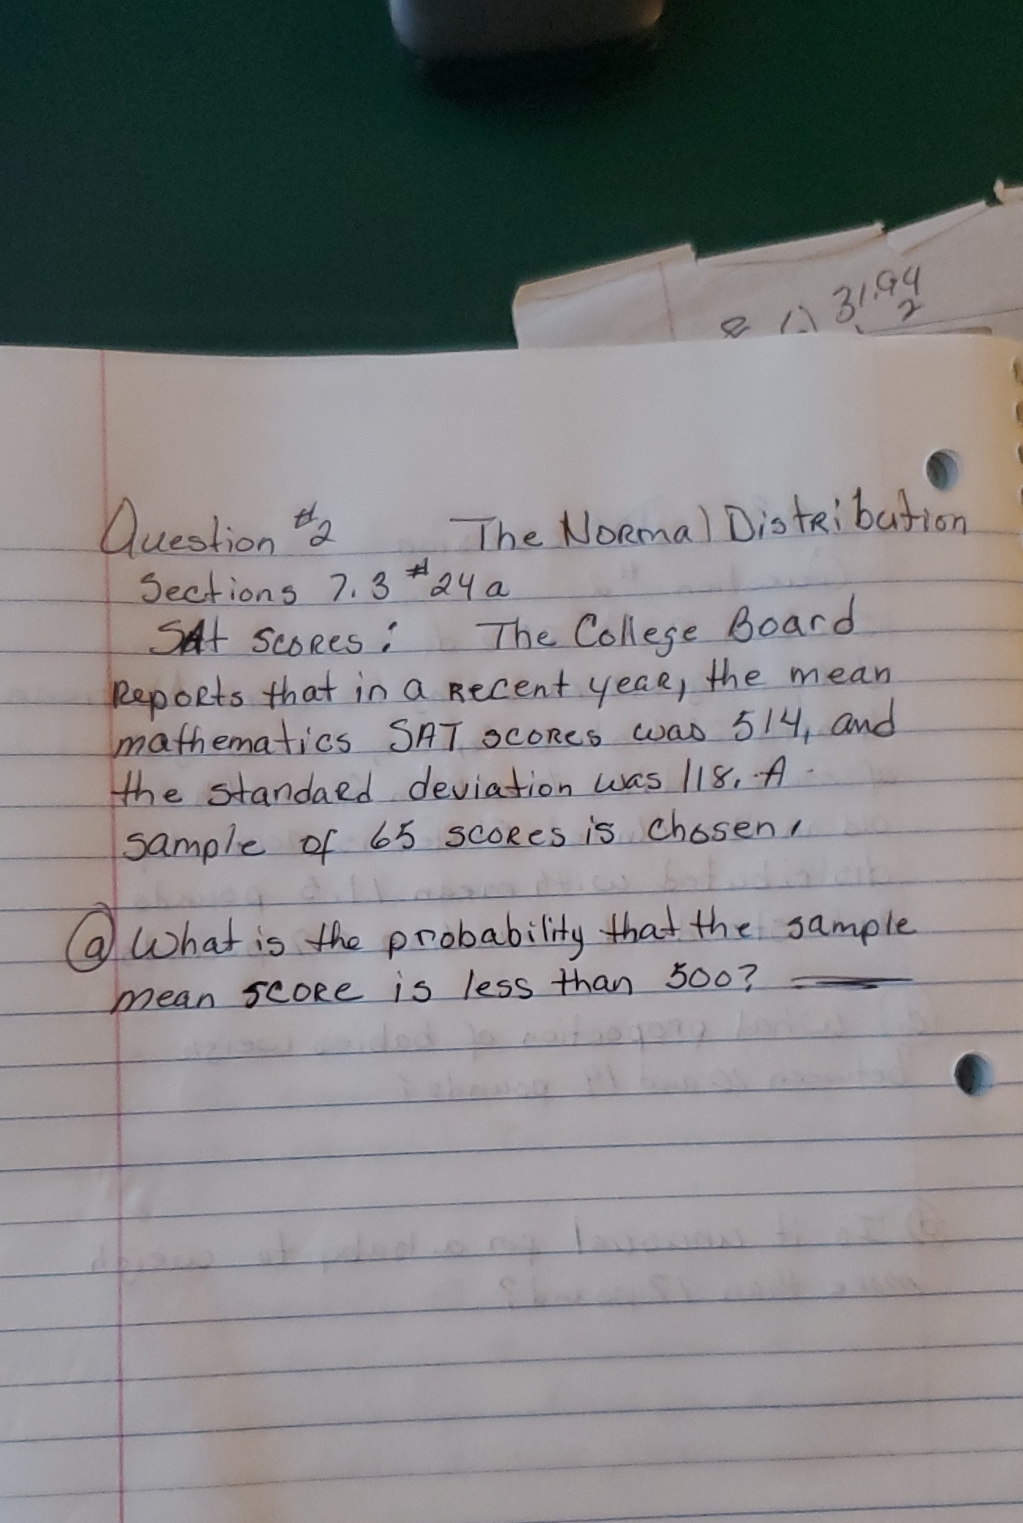 31.94
2
Question #2 The Normal Distribution
Sections 7.3 #24a
SAt scores: The College Board
Reports that in a Recent year, the mean
mathematics SAT scores was 514, and
the standard deviation was 118. A
sample of 65 scores is chosen.
(a) What is the probability that the sample
mean score is less than 500?